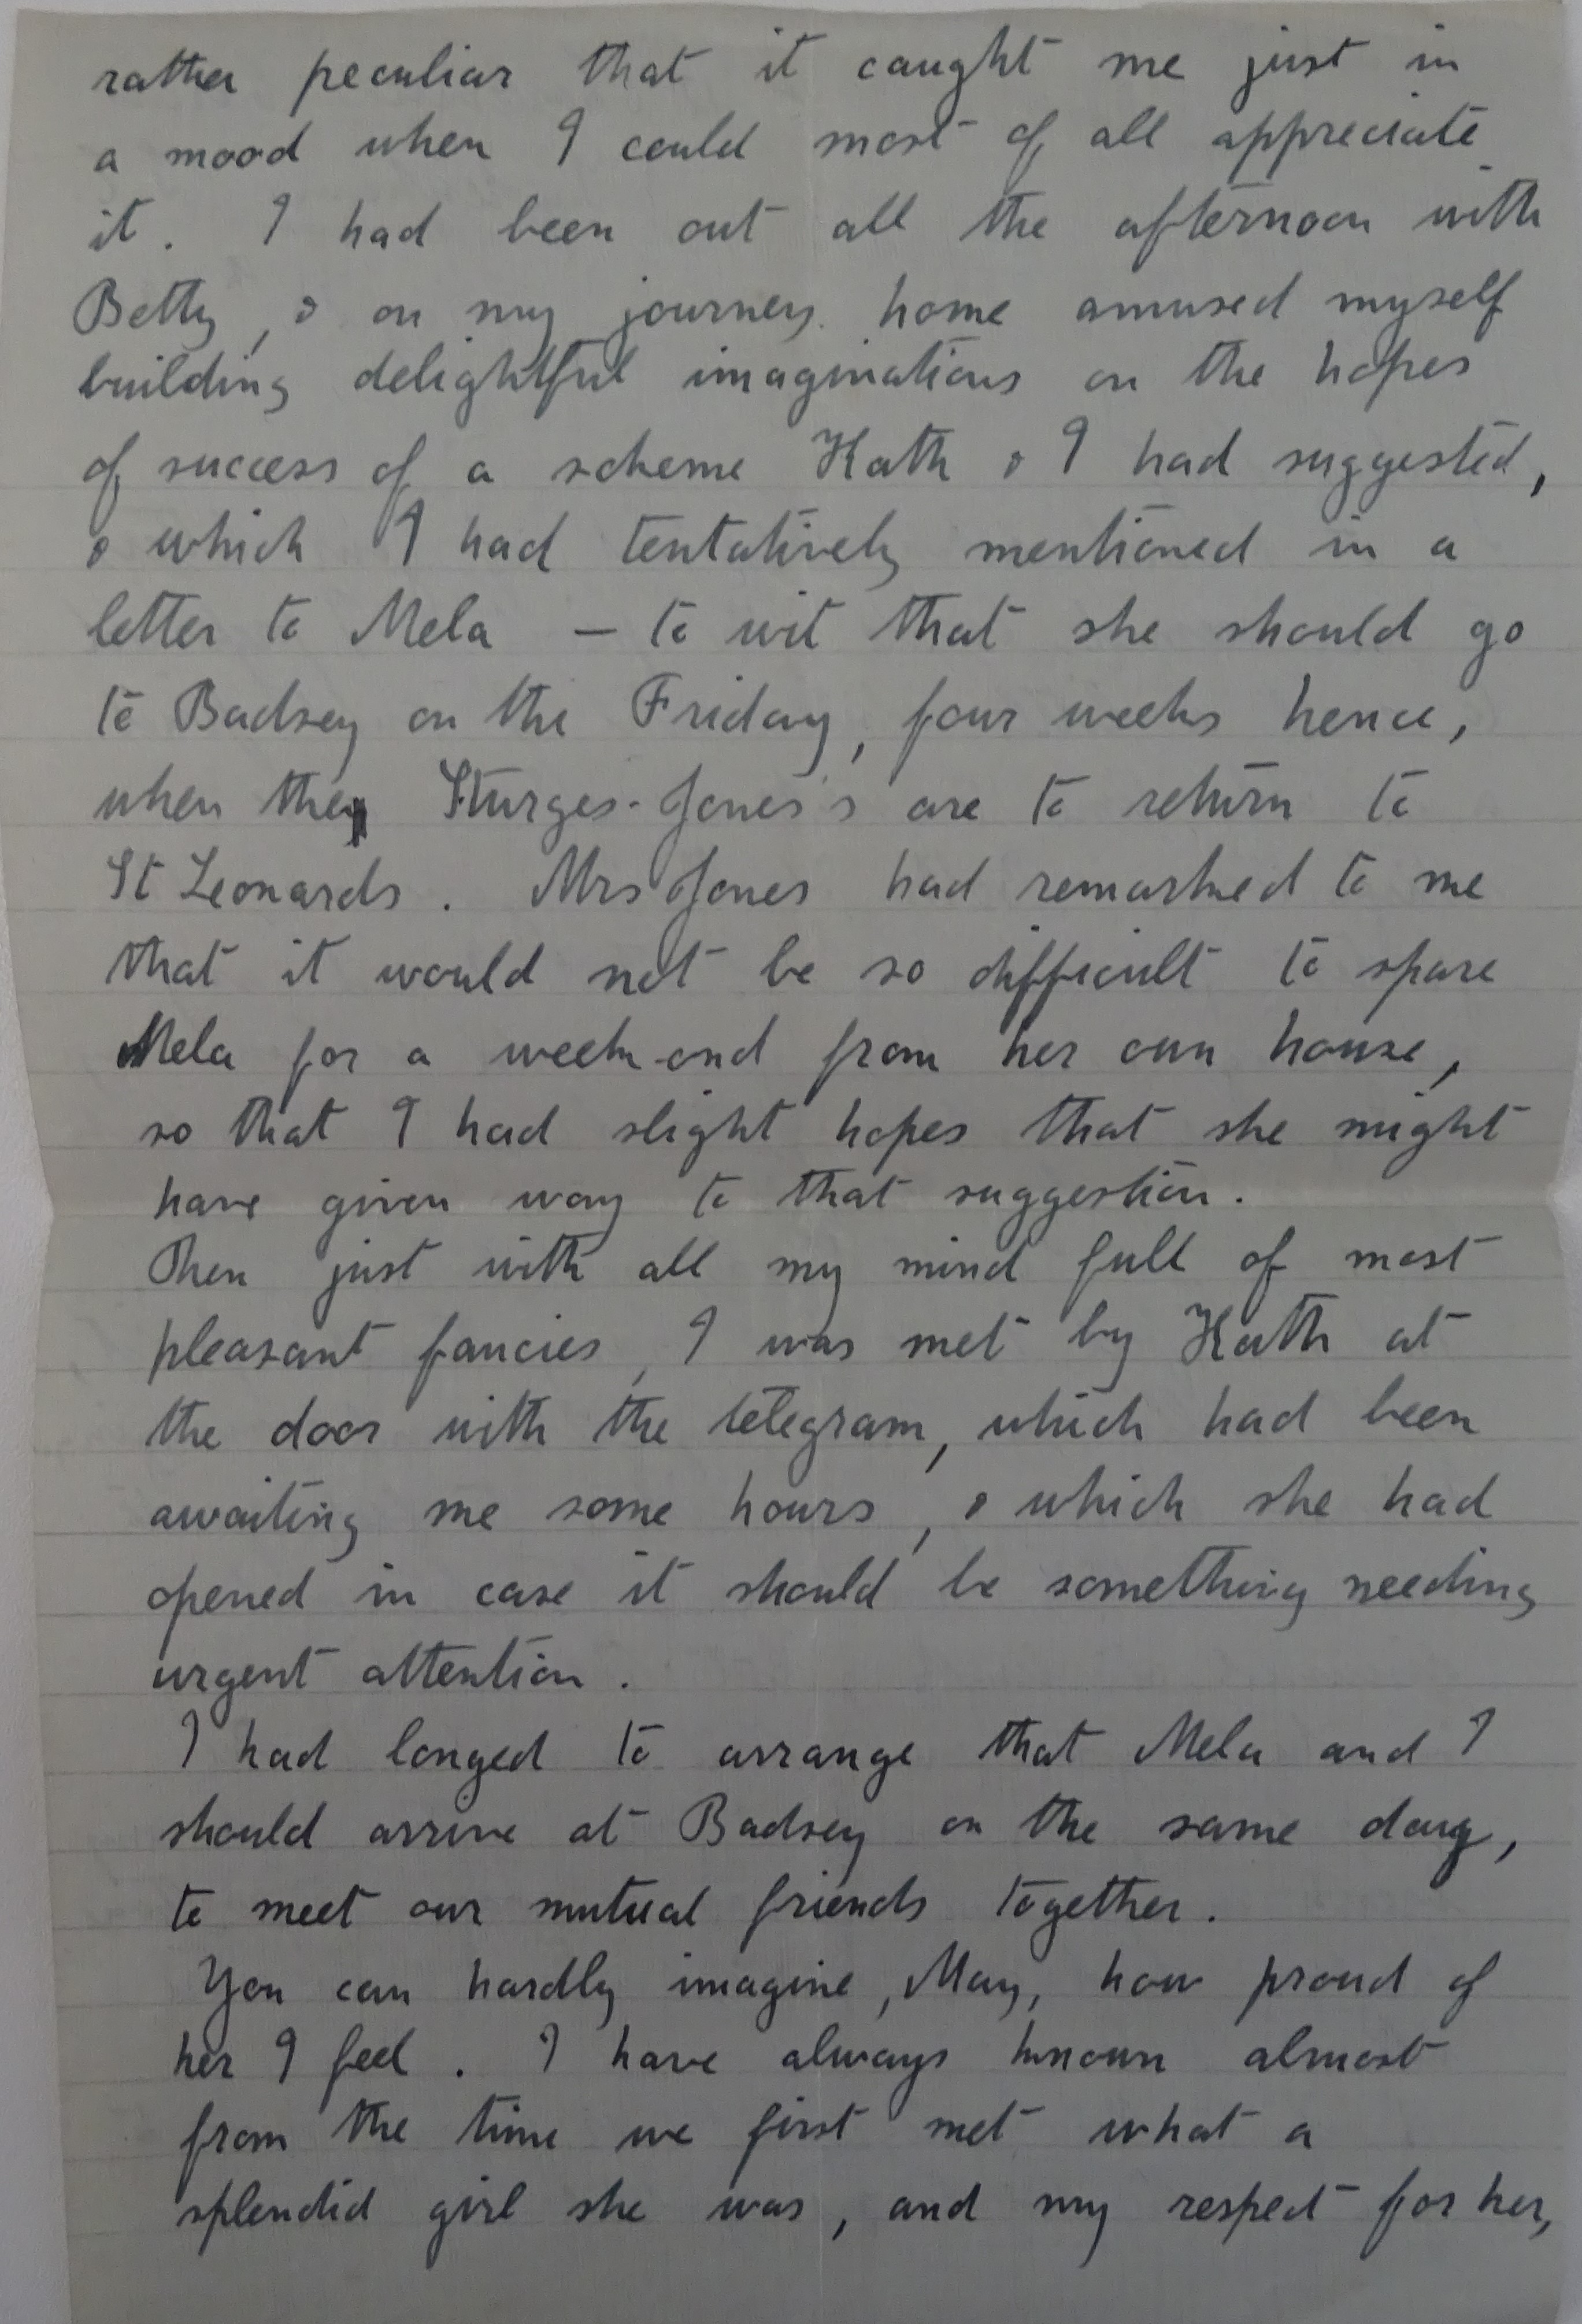 rather peculiar that it caught me just in
a mood when I could most of all appreciate
it. I had been out all the afternoon with
Betty, & on my journey home amused myself
building delightful imaginations on the hopes
of success of a scheme Kath & I had suggested,
& which I had tentatively mentioned in a
letter to Mela — to wit that she should go
to Badsey on the Friday, four weeks hence,
when the Sturges-Jones's are to return to
St Leonards. Mrs Jones had remarked to me
that it would not be so difficult to spare
Mela for a week-end from her own house,
so that I had slight hopes that she might
have given way to that suggestion.
Then just with all my mind full of most
pleasant fancies, I was met by Kath at
the door with the telegram, which had been
awaiting me some hours, & which she had
opened in case it should be something needing
urgent attention.
I had longed to arrange that Mela and I
should arrive at Badsey on the same day,
to meet our mutual friends together.
You can hardly imagine, May, how proud of
her I feel. I have always known almost
from the time we first met what a
splendid girl she was, and my respect for her,